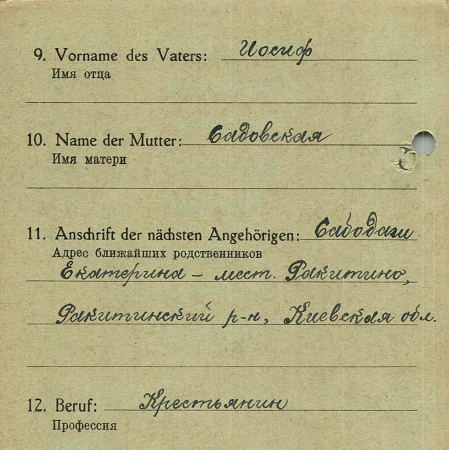 9. Vorname des Vaters: Иосиф
Имя отца
10. Name der Mutter: Садовская
Имя матери
11. Anschrift der nächsten Angehörigen: Сабодаш
Адрес ближайших родственников
Екатерина – мест. Ракитино,
Ракитинский р-н, Киевская обл.
12. Beruf: Крестьянин
Профессия